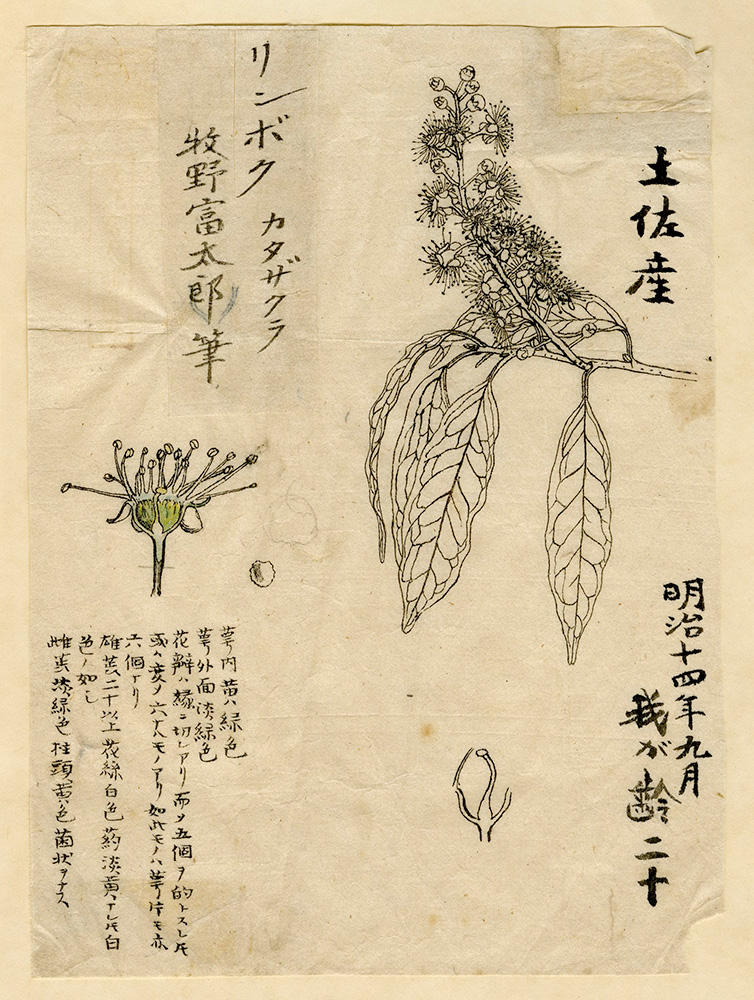 土佐産
明治十四年九月
我が齢二十
リンボク カタザクラ
牧野富太郎筆
萼内黄ハ緑色
萼外面淡緑色
花辨ハ縁ニ切レアリ而シ五個ヲ的トスレ𪜈
或ハ変シ六ナルモノアリ如此モノハ萼片モ亦
六個ナリ
雄蕊二十以上花絲白色葯淡黄ナレ𪜈白
色ノ如シ
雌蕊淡緑色柱頭黄色菌状ヲナス